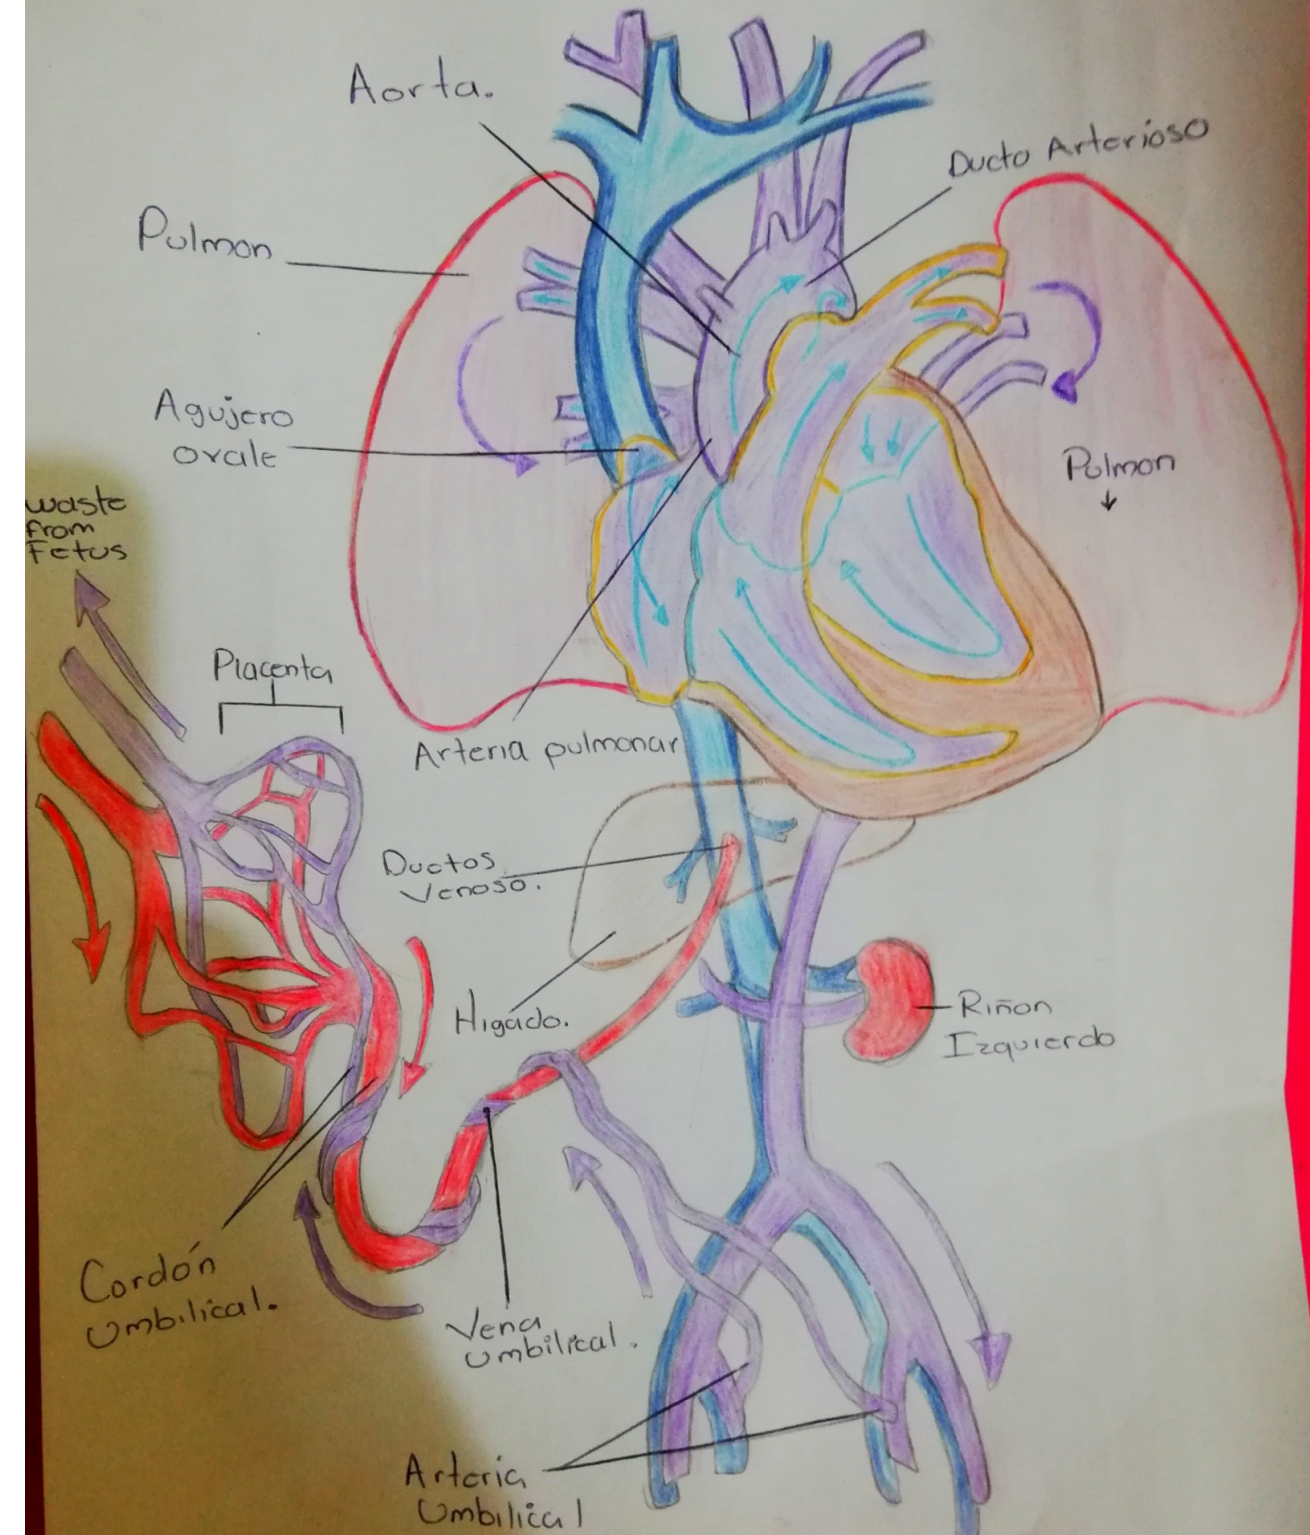 Aorta.
Ducto Arterioso
Pulmon
Agujero
ovale
Pulmon
waste
from
Fetus
Placenta
Arteria pulmonar
Ductos
Venoso.
Higádo.
Riñon
Izquierdo
Cordón
umbilical.
Vena
umbilical.
Arteria
Umbilical